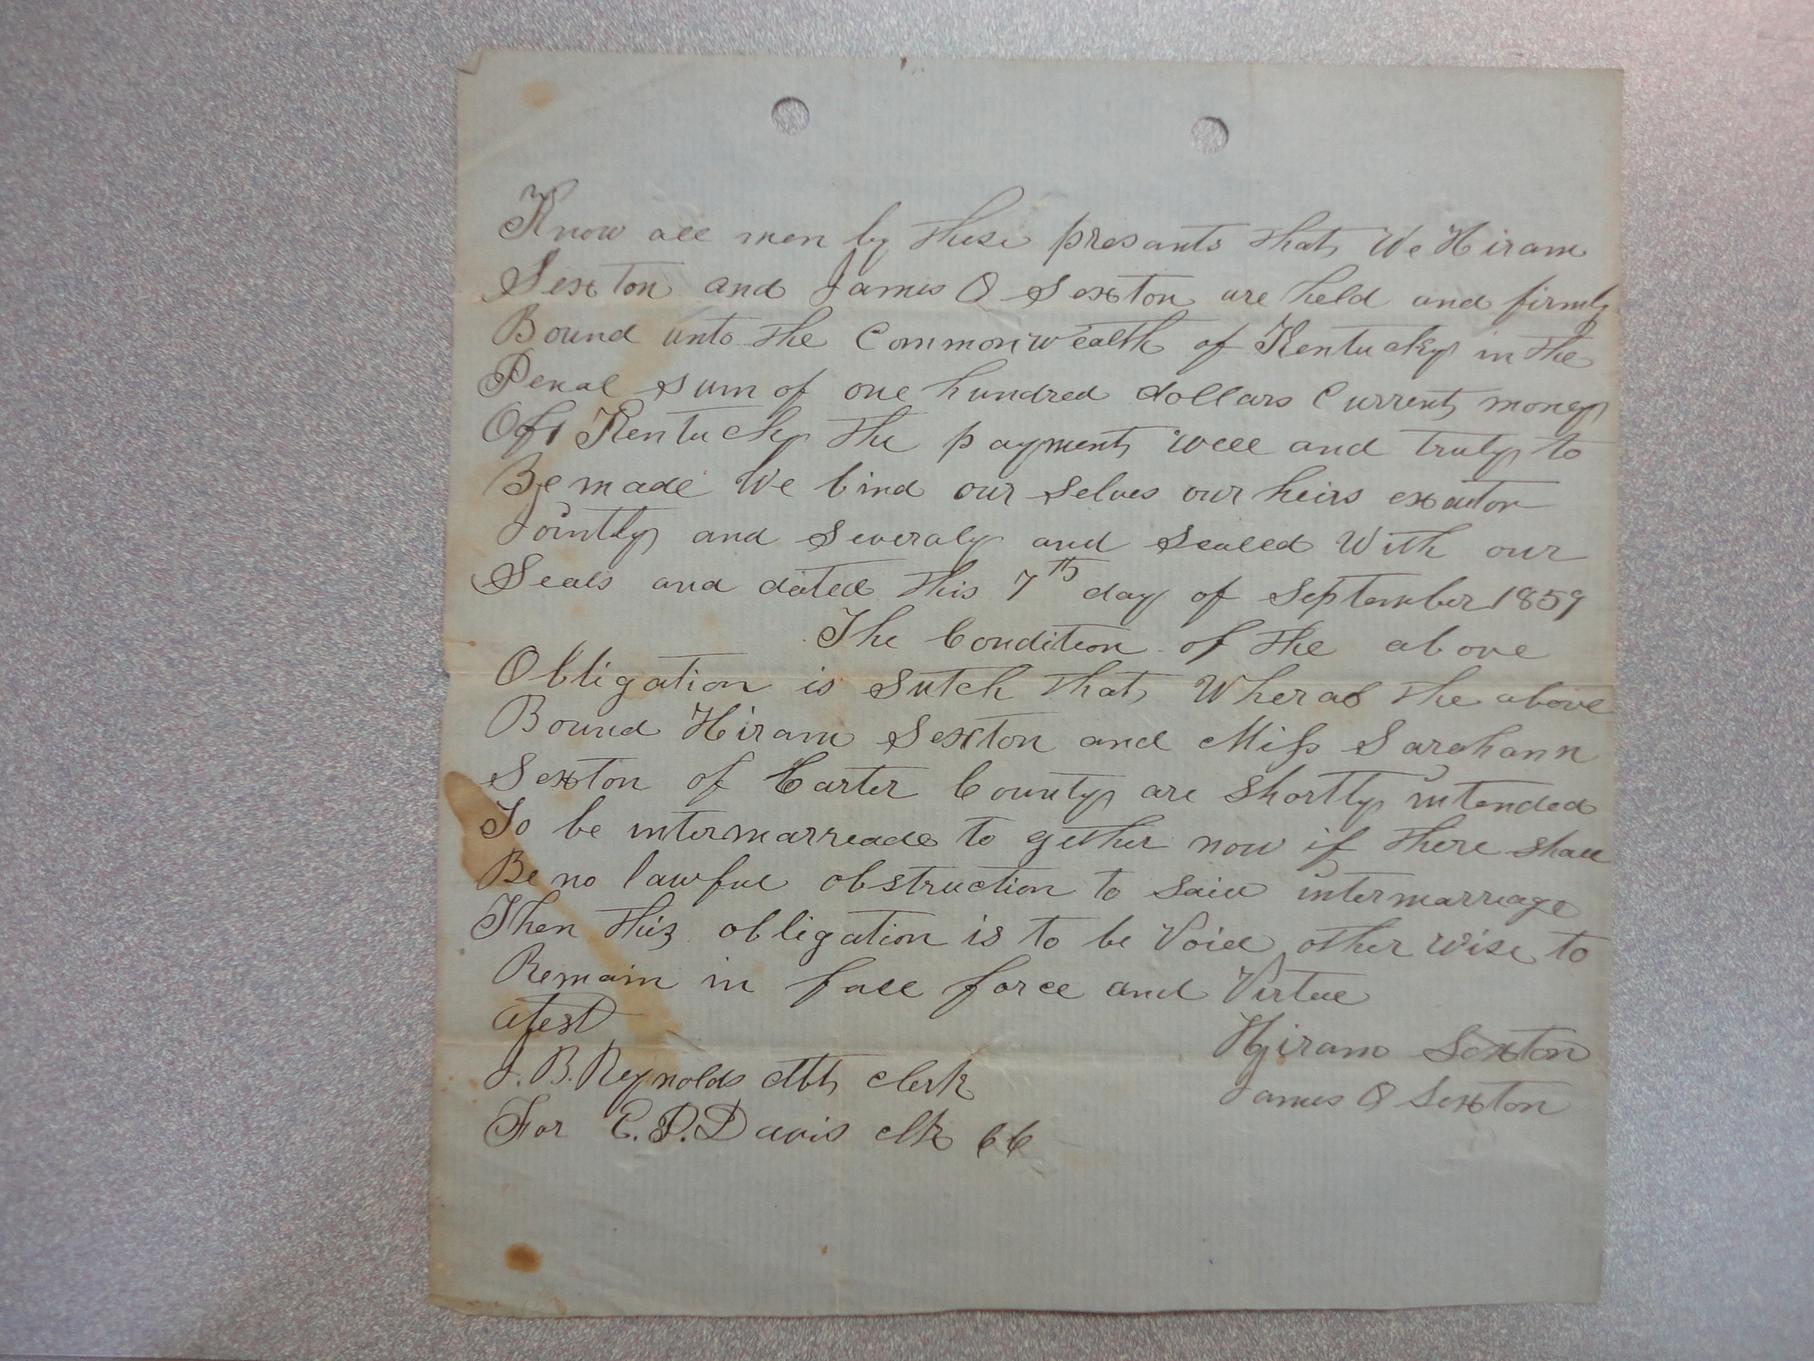 Know all men by these presants that We Hiram
Sexton and James O Sexton are held and firmly
Bound unto the Commonwealth of Kentucky in the
Penal sum of one hundred dollars Current money
Of Kentucky the payment well and truly to
Be made We bind our selves our heirs exector
Jointly and Severaly and Sealed With our
Seals and dated this 7th day of September 1859
The Condition of the above
Obligation is Sutch that Wheras the above
Bound Hiram Sexton and Miss Sarahann
Sexton of Carter County are Shortly intended
To be intermarreade to gether now if there shall
Be no lawful obstruction to Said intermarriage
Then this obligation is to be Void other Wise to
Remain in full force and Virtue
atest
Hiram Sexton
J. B. Reynolds clerk
James O Sexton
For C. P. Davis clk CC